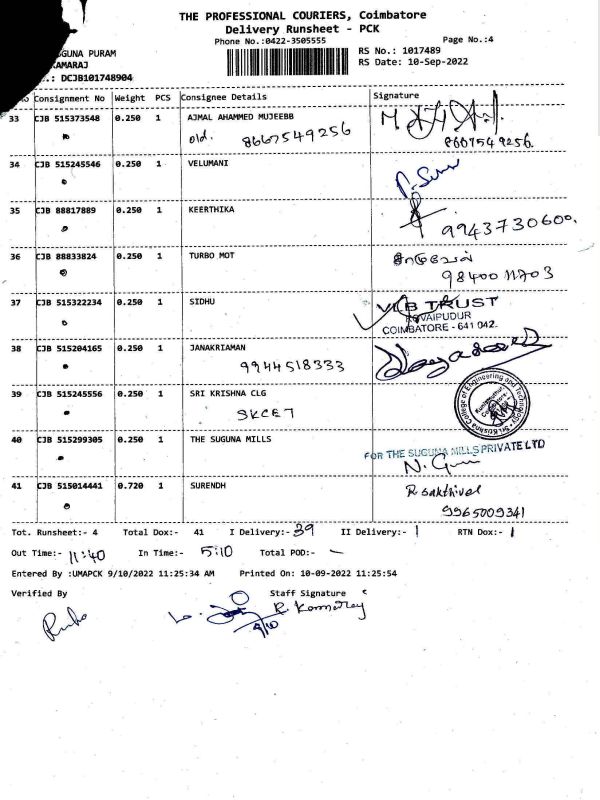 THE PROFESSIONAL COURIERS, Coimbatore
Delivery Runsheet - PCK
Phone No.:0422-3505555 Page No.:4
GUNA PURAM RS No.: 1017489
KAMARAJ RS Date: 10-Sep-2022
.: DCJB101748904
No Consignment No Weight PCS Consignee Details Signature
33 CJB 515373548 0.250 1 AJMAL AHAMMED MUJEEBB
old. 8667549256 8667549256.
34 CJB 515245546 0.250 1 VELUMANI
35 CJB 88817889 0.250 1 KEERTHIKA
9943730600.
36 CJB 88833824 0.250 1 TURBO MOT
9840011703
37 CJB 515322234 0.250 1 SIDHU VLB TRUST
KOVAIPUDUR
COIMBATORE - 641 042.
38 CJB 515204165 0.250 1 JANAKRIAMAN
9944518333
39 CJB 515245556 0.250 1 SRI KRISHNA CLG
SKCET
Sri Krishna College of Engineering and Technology
40 CJB 515299305 0.250 1 THE SUGUNA MILLS
FOR THE SUGUNA MILLS PRIVATE LTD
41 CJB 515014441 0.720 1 SURENDH R. sakthivel
9965009341
Tot. Runsheet:- 4 Total Dox:- 41 I Delivery:- 39 II Delivery:- 1 RTN Dox:- 1
Out Time:- 11:40 In Time:- 5:10 Total POD:- -
Entered By :UMAPCK 9/10/2022 11:25:34 AM Printed On: 10-09-2022 11:25:54
Verified By Staff Signature